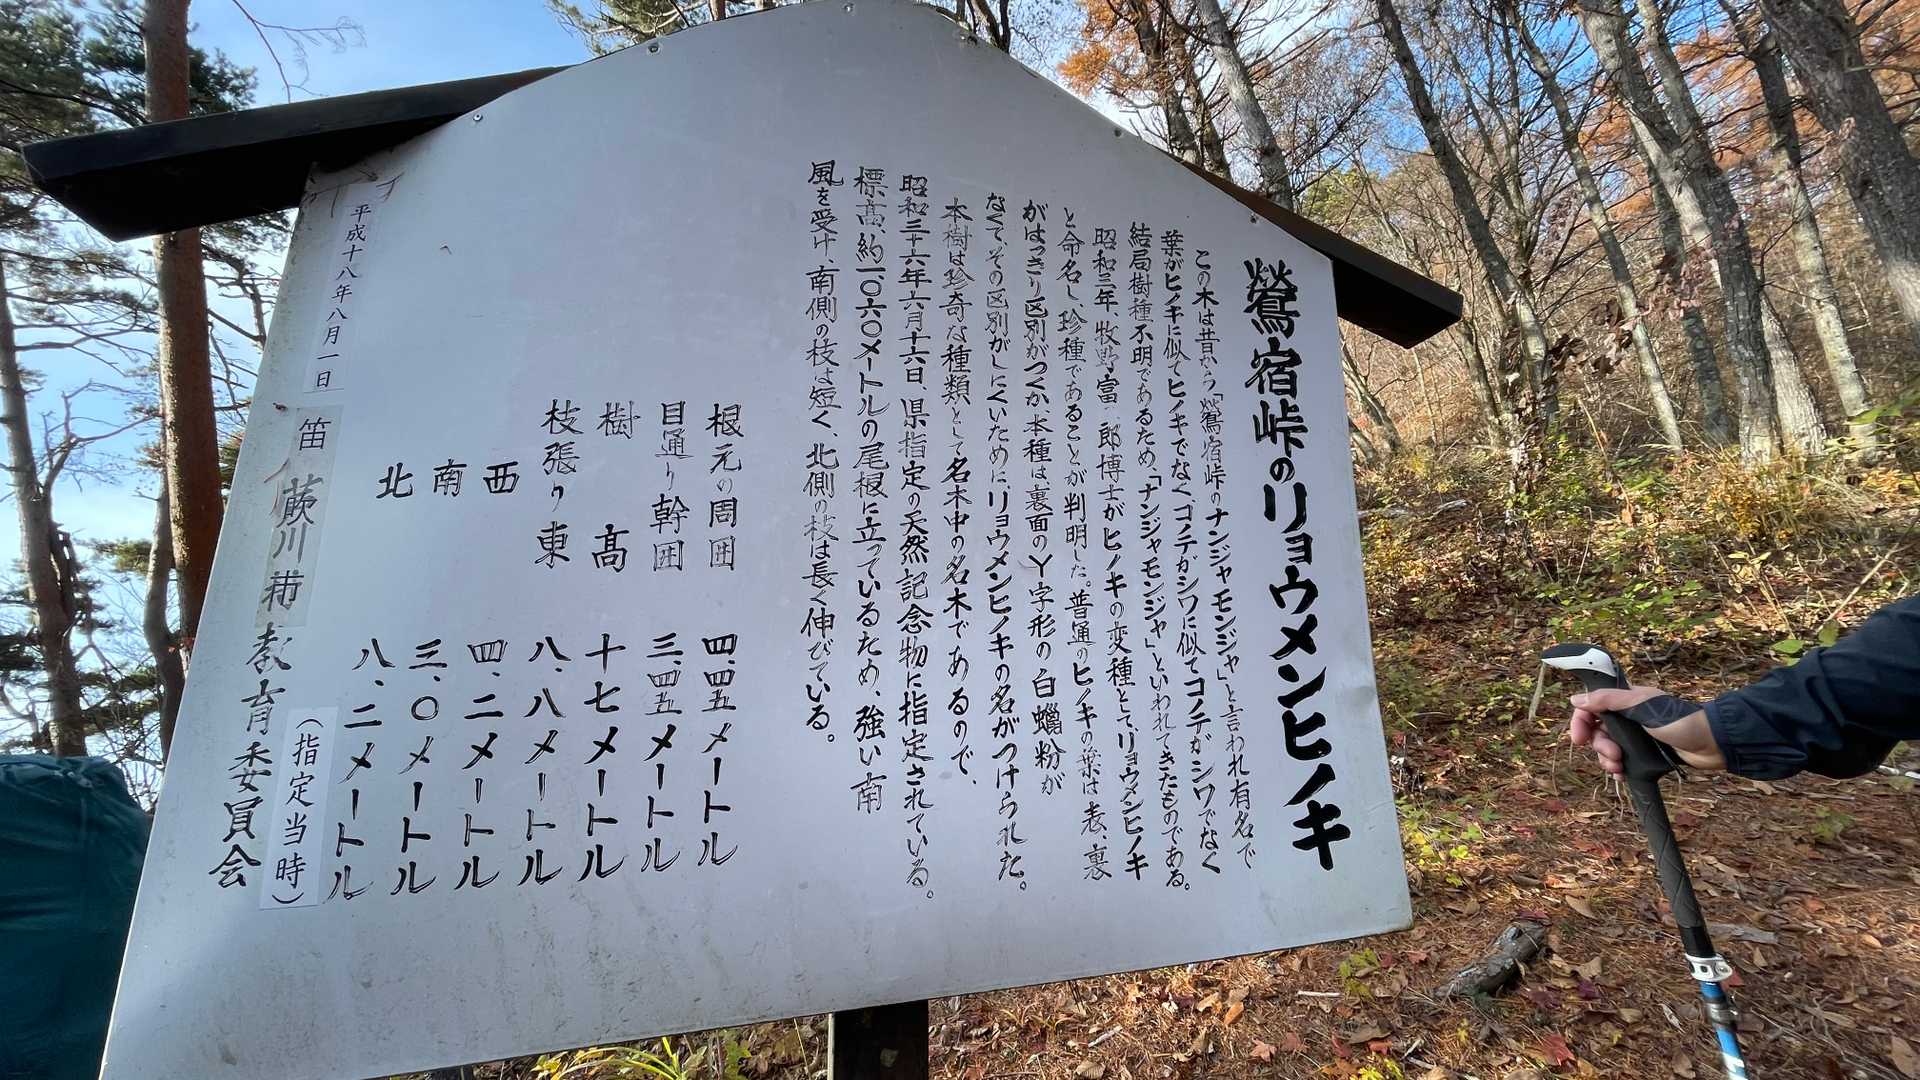 鶯宿峠のリョウメンヒノキ
この木は昔から「鶯宿峠のナンジャモンジャ」と言われ有名で
葉がヒノキに似てヒノキでなく、コノテガシワに似てコノテガシワでなく
結局樹種不明であるため、「ナンジャモンジャ」といわれてきたものである。
昭和三年、牧野富一郎博士がヒノキの変種として、リョウメンヒノキ
と命名し、珍種であることが判明した。普通のヒノキの葉は表、裏
がはっきり区別がつくか本種は裏面のY字形の白蠟粉が
なくて、その区別がしにくいために、リョウメンヒノキの名がつけられた。
本樹は珍奇な種類として名木中の名木であるので、
昭和三十六年六月十六日、県指定の天然記念物に指定されている。
標高、約一〇六〇メートルの尾根に立っているため、強い南
風を受け、南側の枝は短く、北側の枝は長く伸びている。
根元の周囲 四、四五メートル
目通り幹囲 三、四五メートル
樹高 十七メートル
枝張り東 八、八メートル
西 四、二メートル
南 三、〇メートル
北 八、二メートル
(指定当時)
平成十八年八月一日
笛 蕨川 市 教育委員会